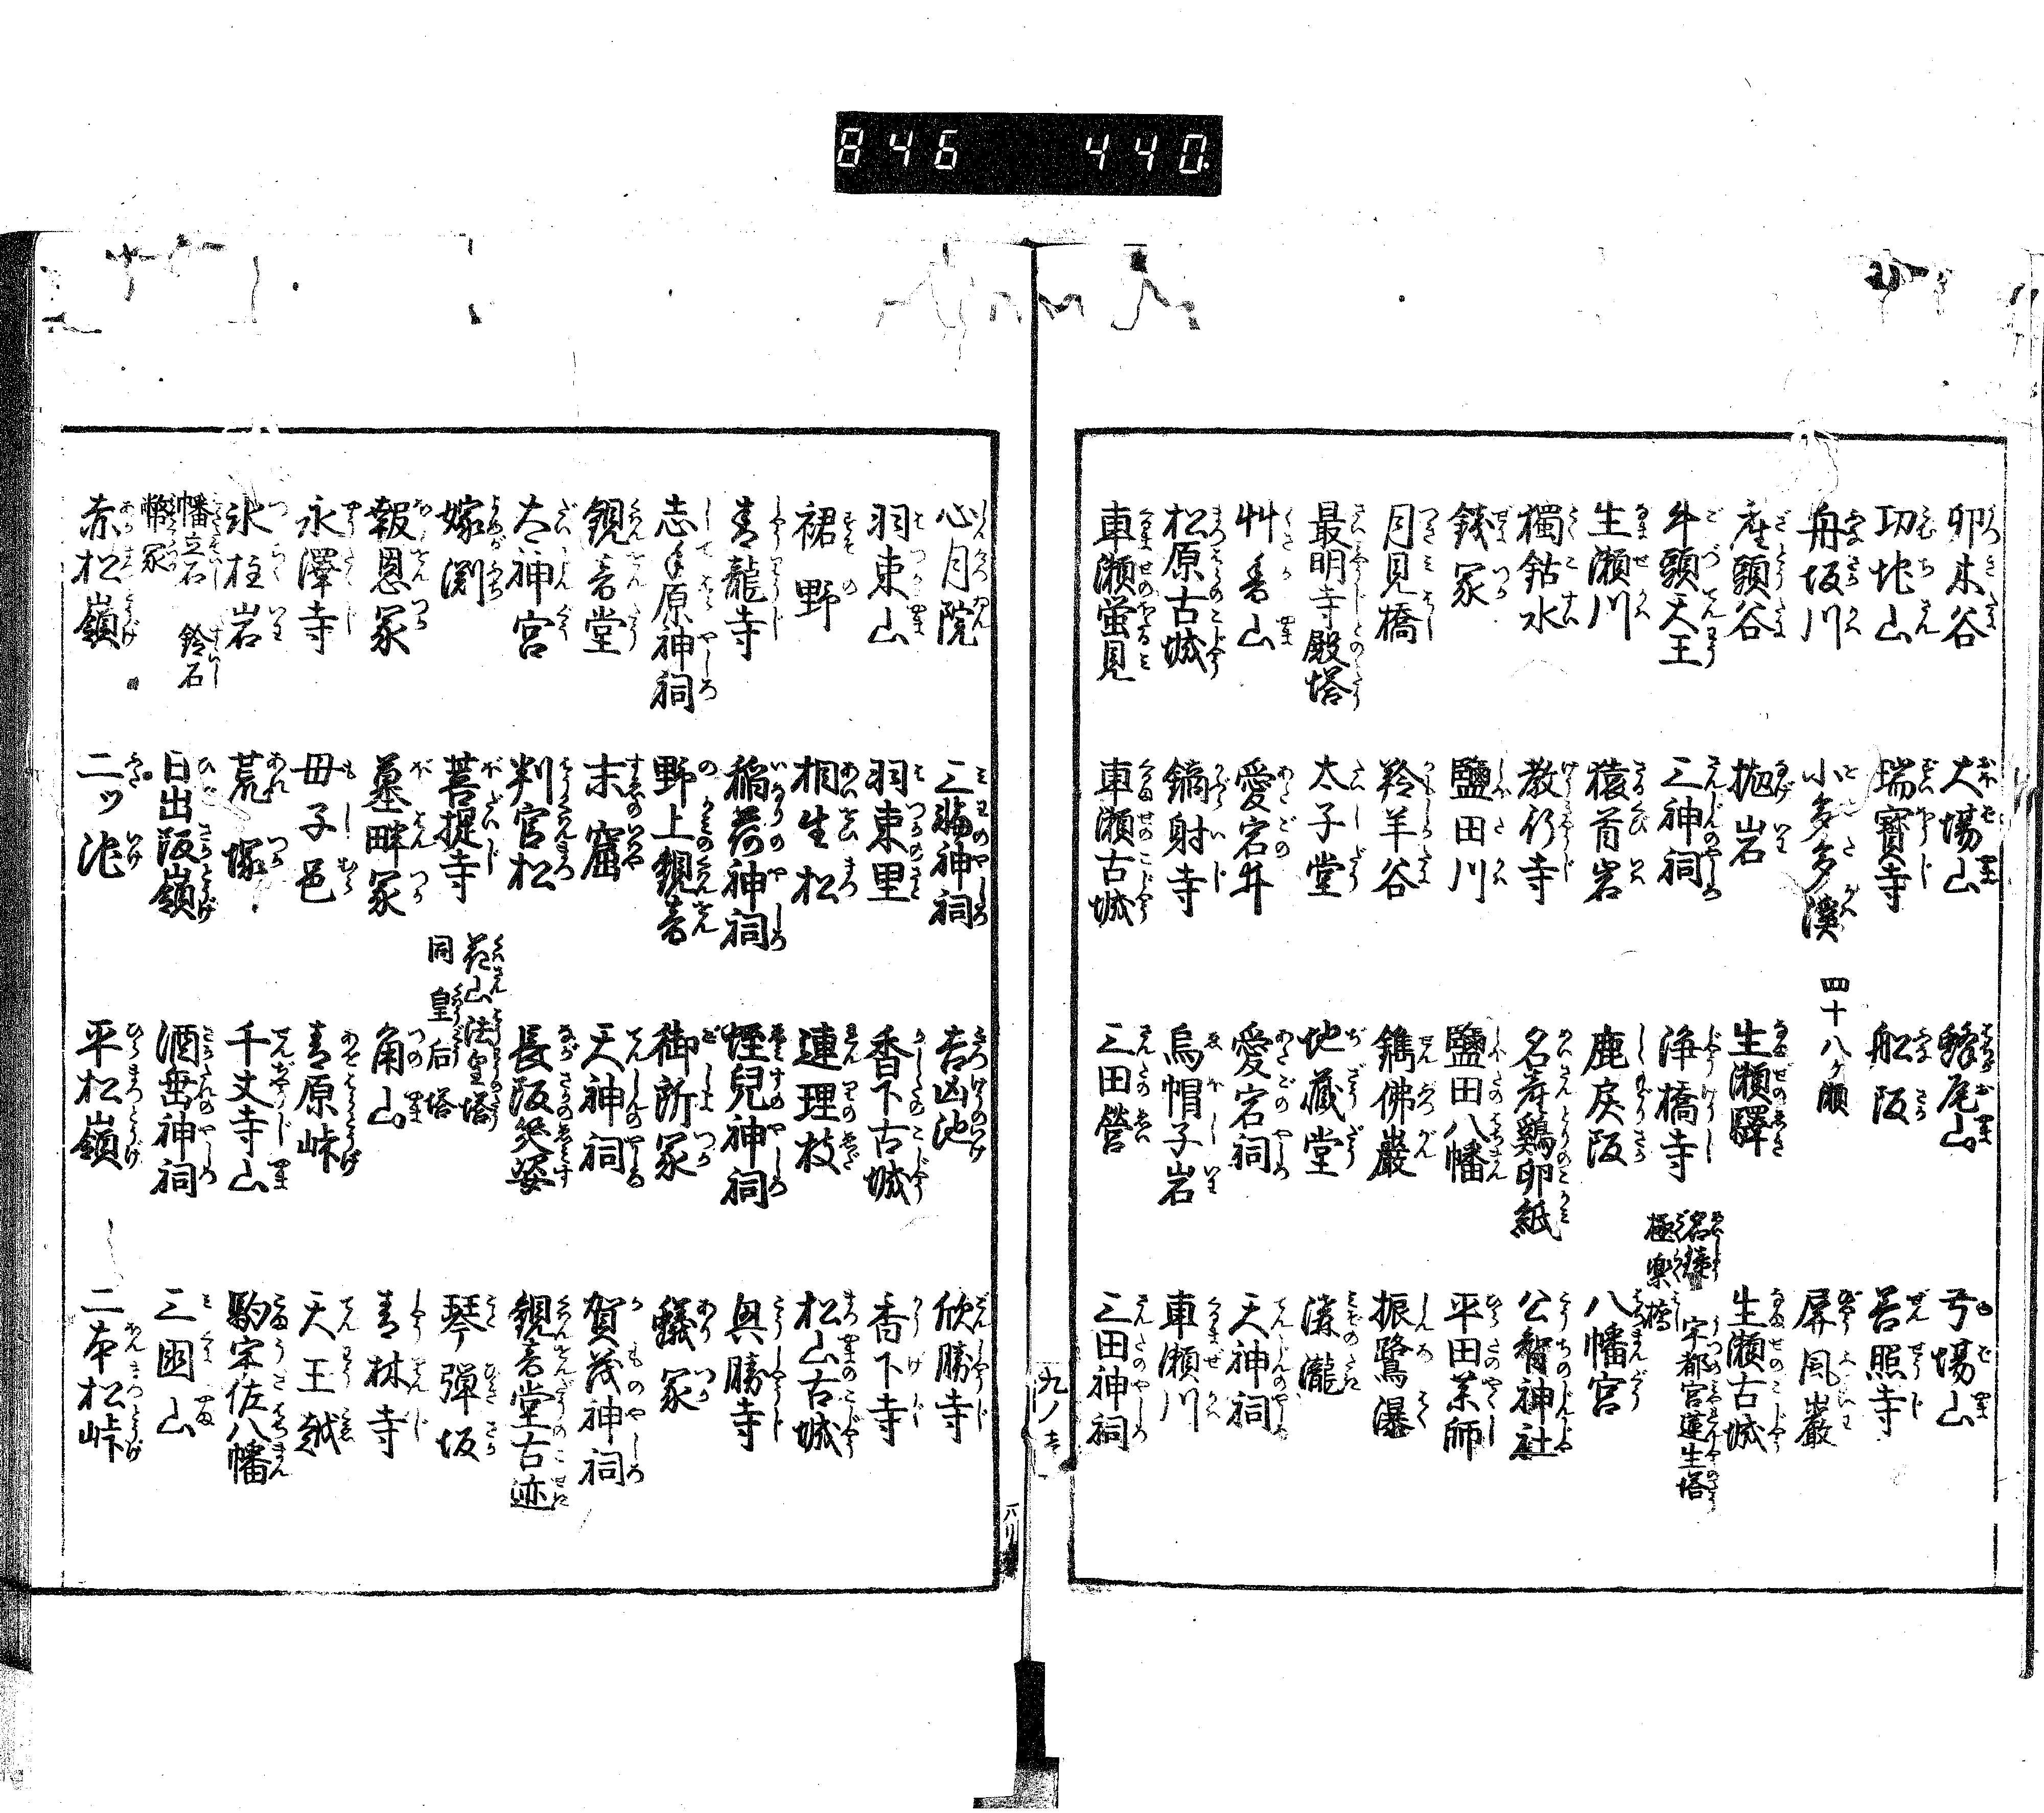 846 440
卯木谷 大場山 蜂尾山 弓場山
功地山 瑞寳寺 船阪 善照寺
舟坂川 小多多溪 四十八ヶ瀬 屏風巖
座頭谷 抛岩 生瀬驛 生瀬古城
牛頭天王 三神祠 浄橋寺 名鐘 極楽橋 宇都宮蓮生塔
生瀬川 猿首岩 鹿戻阪 八幡宮
獨鈷水 教行寺 名産鶏卵紙 公智神社
銭冢 鹽田川 鹽田八幡 平田薬師
月見橋 羚羊谷 鐫佛巖 振鷺瀑
最明寺殿塔 太子堂 地蔵堂 溝瀧
艸香山 愛宕井 愛宕祠 天神祠
松原古城 鏑射寺 烏帽子岩 車瀬川
車瀬蛍見 車瀬古城 三田營 三田神祠
九ノ
心月院 三輪神祠 吉凶池 欣勝寺
羽束山 羽束里 香下古城 香下寺
裙野 相生松 連理枝 松山古城
青龍寺 稲荷神祠 蛭兒神祠 興勝寺
志手原神祠 野上観音 御所冢 蟻冢
観音堂 末窟 天神祠 賀茂神祠
太神宮 判官松 長阪癸姿 観音堂古迹
嫁渕 菩提寺 花山法皇塔 同皇后塔 琴弾坂
報恩冢 墓畔冢 角山 青林寺
永澤寺 毋子邑 青原峠 天王越
氷柱岩 荒塚 千丈寺山 駒宇佐八幡
幡立石 鈴石 幣冢 日出阪嶺 酒垂神祠 三国山
赤松嶺 二ツ池 平松嶺 二本松峠